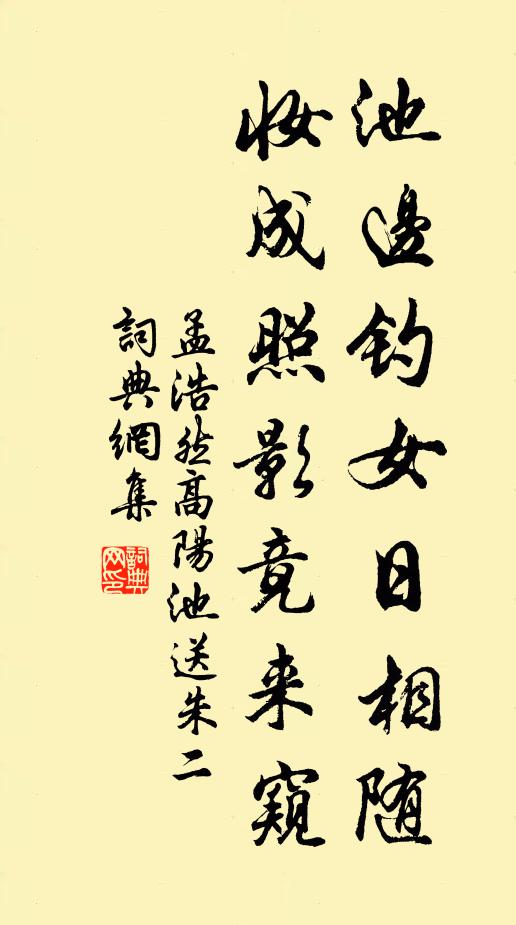 池邊釣女日相随
妝成照影竟来窺
孟浩然高陽池送朱二
詞典網集
詞典网印